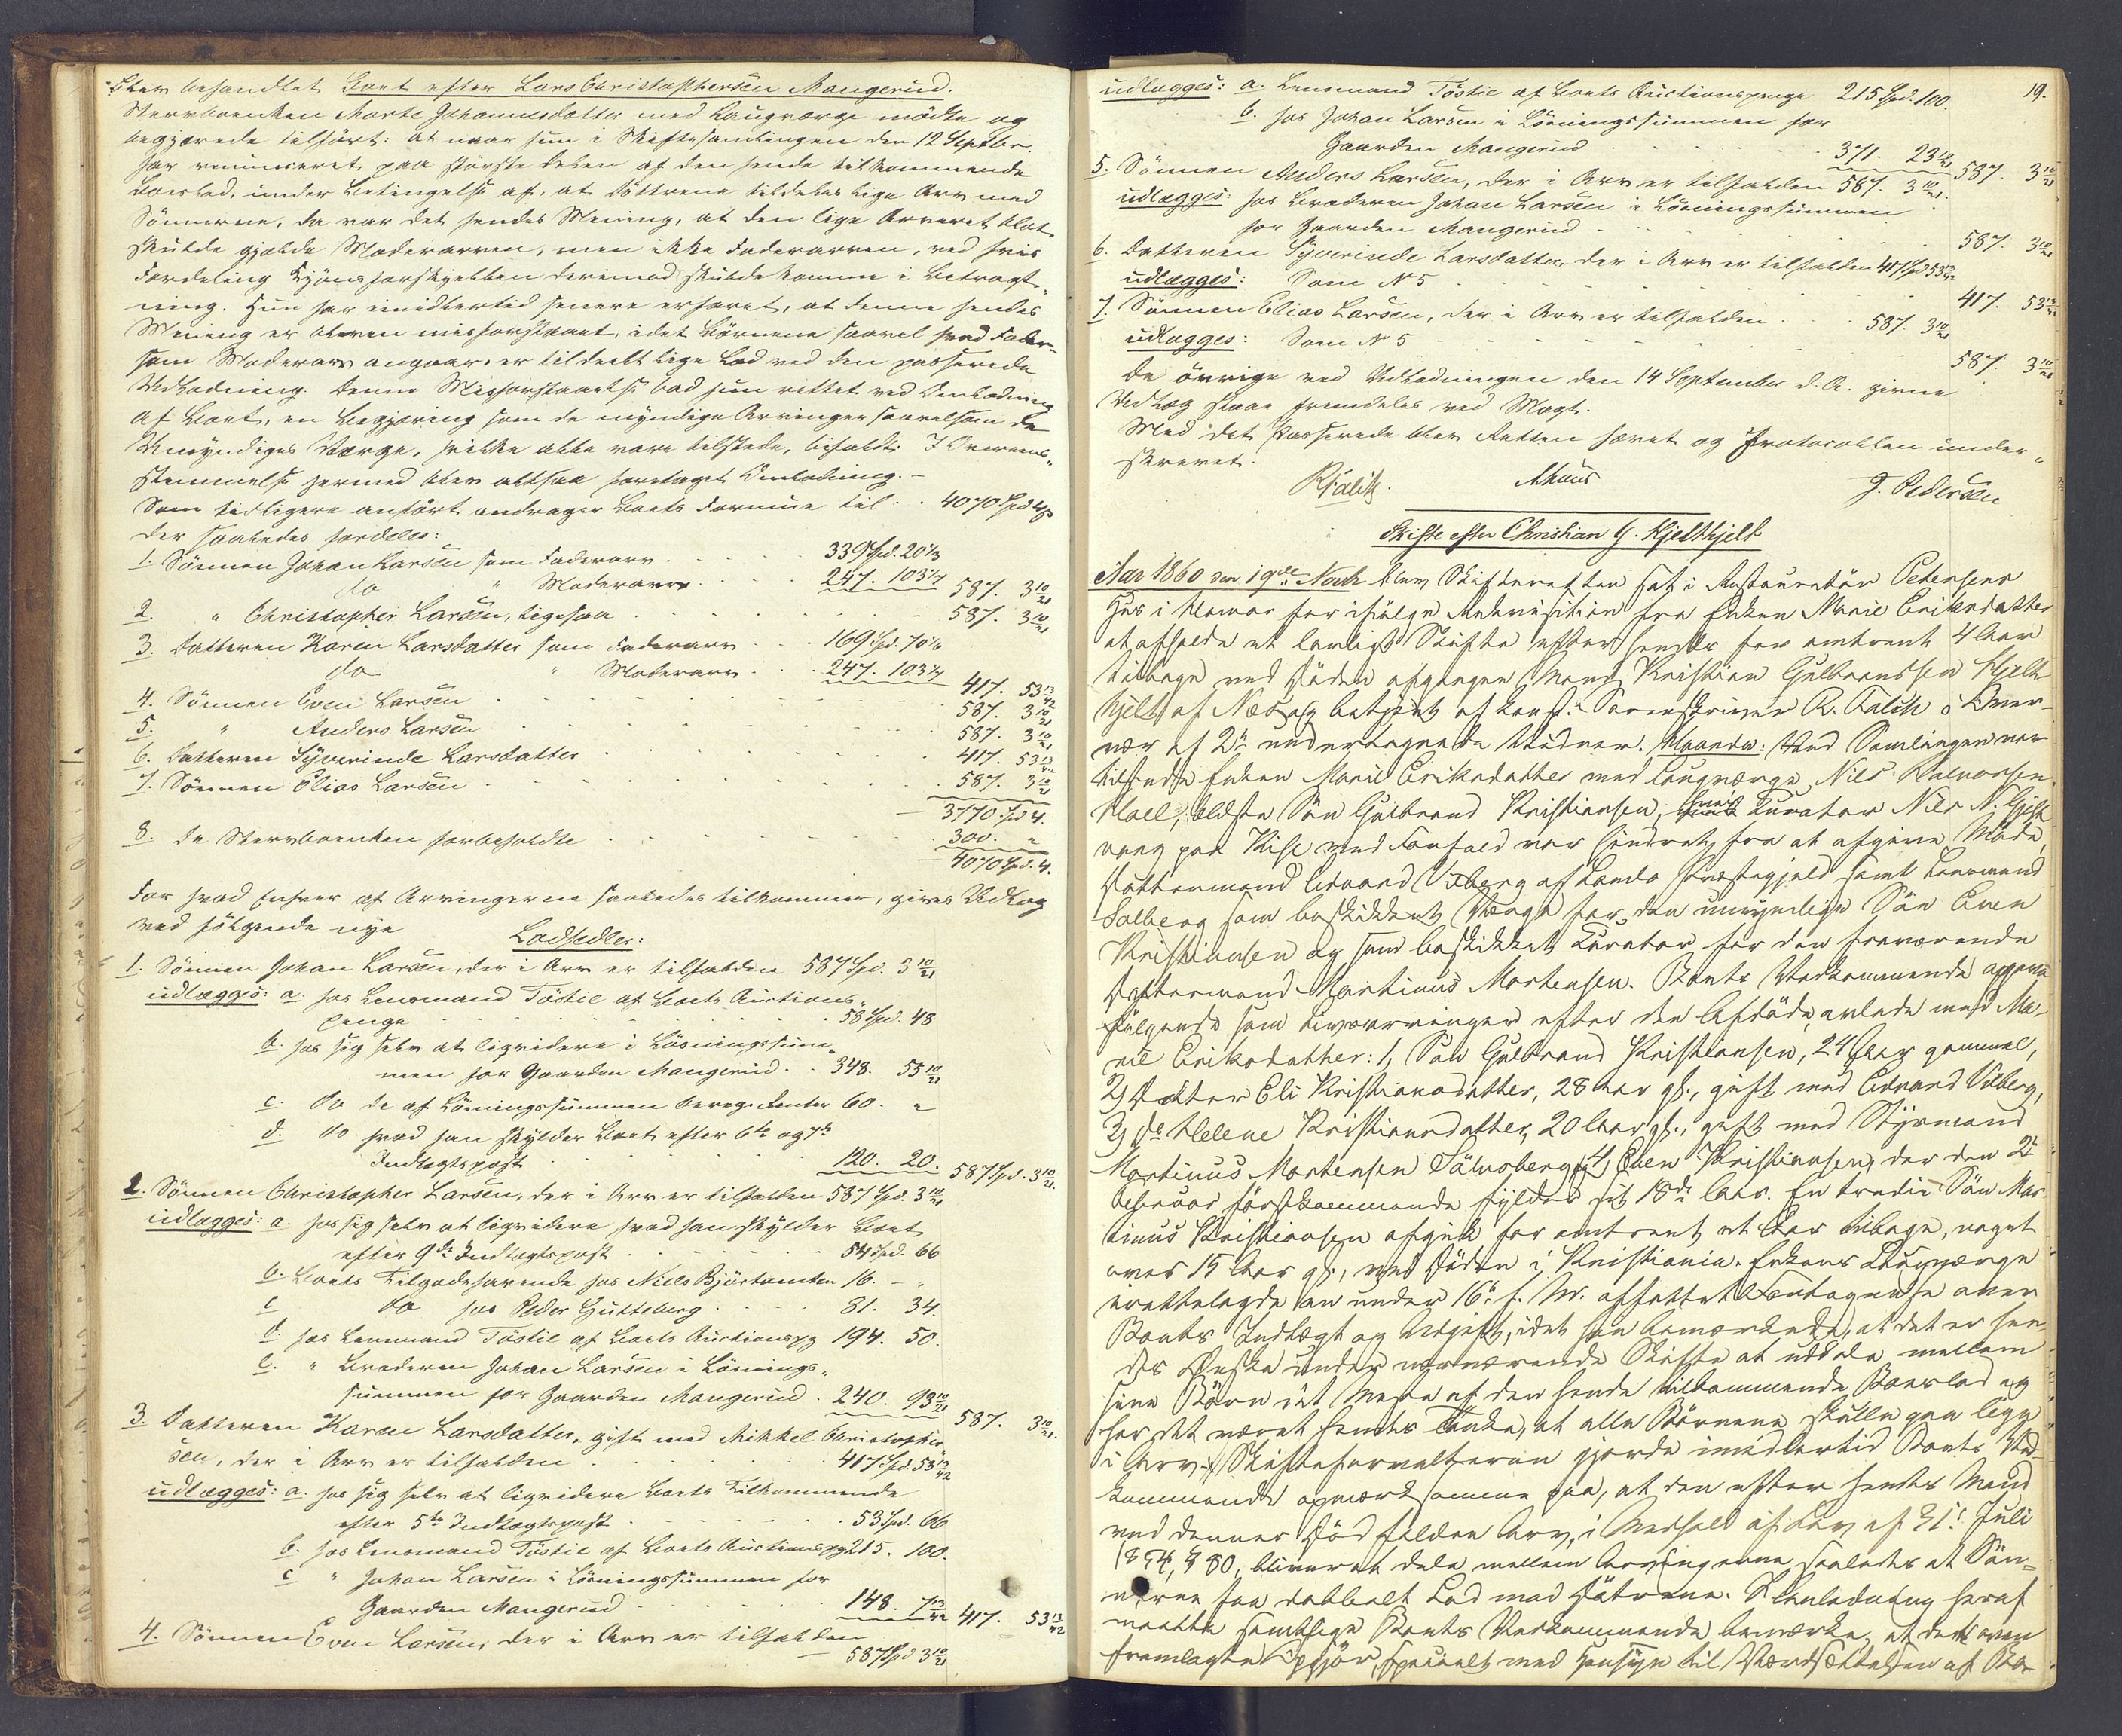 blev behandlet Boet efter Lars Christophersen Mangerud.
Stervboenken Marte Johannesdatter med Laugværge mödte og
begjærede tilfört: at naar hun i Skiftesamlingen den 12 Septbr.
har renunceret paa störste Delen af den hende tilkommende
Boeslod, under Betingelse af, at Döttrene tildeles lige Arv med
Sönnerne, da var det hendes Mening, at den lige Arveret blot
skulde gjælde Moderarven, men ikke Faderarven, ved hvis
Fordeling Kjönsforskjellen derimod skulde komme i Betragt-
ning. Hun har imidlertid senere erfaret, at denne hendes
Mening er bleven misforstaaet, idet Börnene saavel hvad Fader-
som Moderarv angaar, er tildeelt lige Lod ved den passerede
Udlodning. Denne Misforstaaelse bad hun rettet ved Omlodning
af Boet, en Begjæring som de myndige Arvinger saavelsom de
Umyndiges Værge, hvilke alle vare tilstede, bifaldt. I Overeens-
stemmelse hermed blev altsaa foretaget Omlodning.-
Som tidligere anfört andrager Boets Formue til . . 4070 Spd 4 s
der saaledes fordeles:
1. Sönnen Johan Larsen som Faderarv . . . 339 Spd. 20 1/3
do " Moderarv . . . 247. 103 1/7 587. 3 10/21
2. " Christopher Larsen, ligesaa . . . 587. 3 10/21
3. Datteren Karen Larsdatter som Faderarv . . 169 Spd. 70 1/6
do " Moderarv . . 247. 103 1/7 417. 53 13/42
4. Sönnen Even Larsen . . . 587. 3 10/21
5. " Anders Larsen . . . 587. 3 10/21
6. Datteren Syverinde Larsdatter . . . 417. 53 13/42
7. Sönnen Elias Larsen . . . 587. 3 10/21
3770 Spd 4.
8. De Stervboenken forbeholdte . . . 300. "
4070 Spd. 4.
For hvad Enhver af Arvingerne saaledes tilkommer, gives Udlæg
ved fölgende nye
Lodsedler:
1. Sönnen Johan Larsen, der i Arv er tilfalden 587 Spd. 3 10/21
udlægges: a. hos Lensmand Töstie af Boets Auctions-
penge . . . 58 Spd. 48
b. hos sig selv at liqvidere i Lösningssum-
men for Gaarden Mangerud . . 348. 55 10/21
c. do de af Lösningssummen bereg. Renter 60. "
d. do hvad han skylder Boet efter 6te og 7de
Indtægtspost . . . 120. 20. 587 Spd. 3 10/21.
2. Sönnen Christopher Larsen, der i Arv er tilfalden 587 Spd. 3 10/21
udlægges: a. hos sig selv at liqvidere hvad han skylder Boet
efter 9de Indtægtspost . . . 54 Spd. 66
b. Boets Tilgodehavende hos Niels Bjørtomten 16. - "
c do hos Peder Gutteberg . . . 81. 34.
d. hos Lensmand Töstie af Boets Auctionspg 194. 50.
e. " Broderen Johan Larsen i Lösnings-
summen for Gaarden Mangerud . 240. 93 10/21 587. 3 10/21.
3. Datteren Karen Larsdatter, gift med Mikkel Christopher-
sen, der i Arv er tilfalden . . . 417 Spd. 53 13/42
udlægges: a. hos sig selv at liqvidere Boets Tilkommende
efter 5te Indtægtspost . . . 53 Spd. 66
b. hos Lensmand Töstie af Boets Auctionspg 215. 100.
c " Johan Larsen i Lösningssummen for
Gaarden Mangerud . . . 148. 7 13/42 417. 53 13/42
4. Sönnen Even Larsen, der i Arv er tilfalden
587 Spd 3 10/21
19.
udlægges: a. Lensmand Töstie af Boets Auctionspenge 215 Spd. 100.
b. hos Johan Larsen i Lösningssummen for
Gaarden Mangerud . . . 371. 23 10/21 587. 3 10/21
5. Sönnen Anders Larsen, der i Arv er tilfalden 587. 3 10/21.
udlægges: hos Broderen Johan Larsen i Lösningssummen
for Gaarden Mangerud . . . 587. 3 10/21
6. Datteren Syverinde Larsdatter, der i Arv er tilfalden 417 Spd 53 13/42
udlægges: Som No 5 . . . 417. 53 13/42
7. Sönnen Elias Larsen, der i Arv er tilfalden . . 587. 3 10/21
udlægges: Som No 5 . . . 587. 3 10/21
De övrige ved Udlodningen den 14 September d. A. givne
Udlæg staae fremdeles ved Magt.
Med det Passerede blev Retten hævet og Protocollen under-
skrevet.
RFalch. J. Pedersen
Skifte efter Christian G. Kjelthjelt
Aar 1860 den 19de Novbr. blev Skifteretten sat i Restauratör Petersens
Huus i Hamar for ifölge Rekvisition fra Enken Marie Eriksdatter
at afholde et lovligt Skifte efter hendes for omtrent 4 Aar
tilbage ved Döden afgangne Mand, Kristian Gulbrandsen Hjelt-
hjelt af Næs og betjent af konst. Sorenskriver R. Falch i Over-
vær af 2de undertegnede Vidner. Mandu: Ved Samlingen var
tilstede Enken Marie Eriksdatter med Laugværge Nils Halvorsen
Hoel, ældste Sön Gulbrand Kristiansen, hvis Kurator Nils N. Gjelt-
vang paa Kise ved Forfald var hindret fra at afgive Möde,
Dattermand Edvard Viberg af Lands Præstegjeld samt Lensmand
Solberg som beskikket Værge for den umyndige Sön Even
Kristiansen og som beskikket Kurator for den fraværende
Dattermand Martinus Mortensen. Boets Vedkommende opgave
Fölgende som Livsarvinger efter den Afdöde, avlede med Ma-
rie Eriksdatter: 1, Sön Gulbrand Kristiansen, 24 Aar gammel,
2) Datter Eli Kristiansdatter, 28 Aar gl., gift med Edvard Viberg,
3) do Helene Kristiansdatter, 20 Aar gl., gift med Styrmand
Martinus Mortensen og 4, Even Kristiansen, der den 2de
Februar förstkommende fylder sit 18de Aar. En tredie Sön Mar-
tinus Kristiansen afgik for omtrent et Aar tilbage, noget
over 15 Aar gl., ved Döden i Kristiania. Enkens Laugværge
fremlagde en under 16de f. M. affattet Fortegnelse over
Boets Indtægt og Udgift, idet han bemærkede, at det er hen-
des Önske under nærværende Skifte at uddele mellem
sine Börn det Meste af den hende tilkommende Boeslod og
har det været hendes Tanke, at alle Börnene skulle gaa lige
i Arv. Skifteforvalteren gjorde imidlertid Boets Ved-
kommende opmærksomme paa, at den efter hendes Mand
ved dennes Död faldne Arv, i Medhold af Lov af 31t Juli
1854, § 80, bliver at dele mellem Arvingerne saaledes at Sön-
nerne faa dobbelt Lod mod Dötrene. I Anledning heraf
maatte samtlige Boets Vedkommende bemærke, at det oven
fremlagte Opgjör, specielt med Hensyn til Værdsættelsen af Bo-